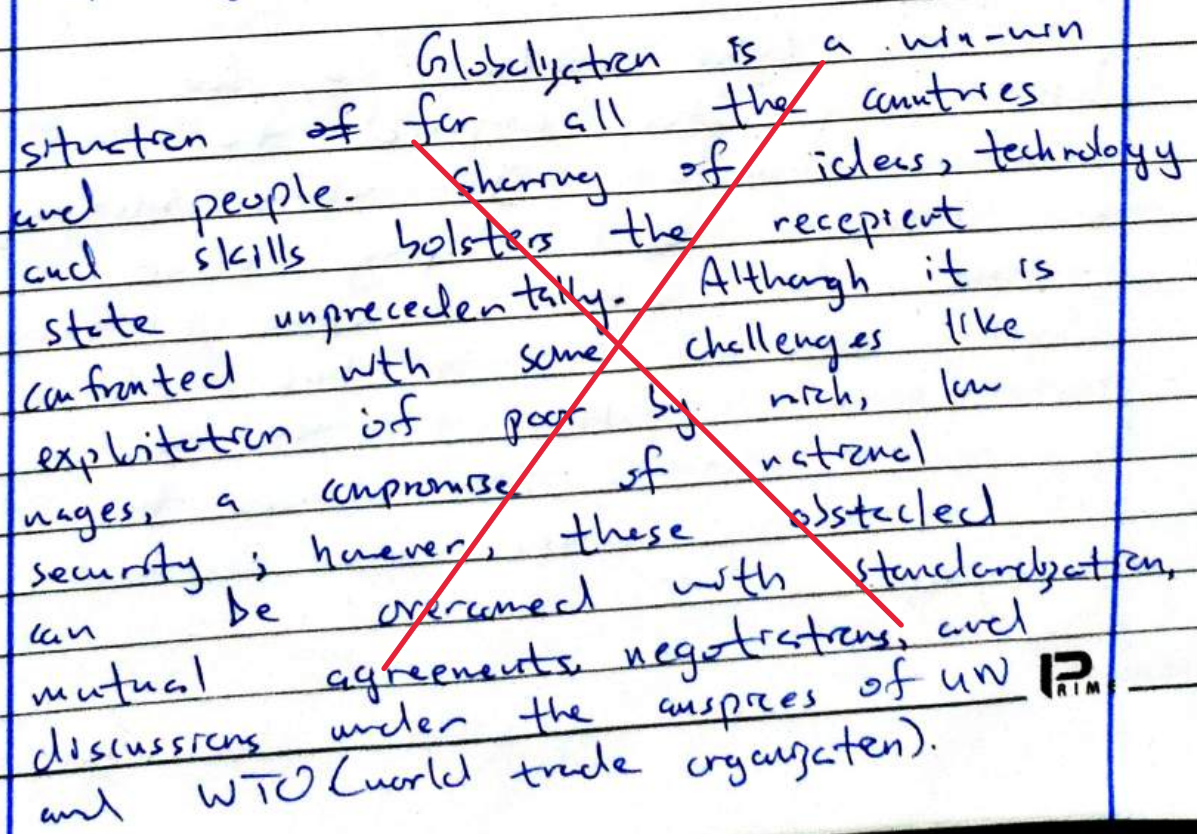 Globalization is a win-win
situation of for all the countries
and people. Sharing of ideas, technology
and skills bolsters the recepient
state unprecedentally. Although it is
confronted wth some challenges like
exploitation of poor by rich, low
wages, a compromise of national
security ; however, these obstacled
can be overcomed with standardization,
mutual agreements, negotiations, and
discussions under the auspices of UN
PRIME
and WTO (world trade organization).